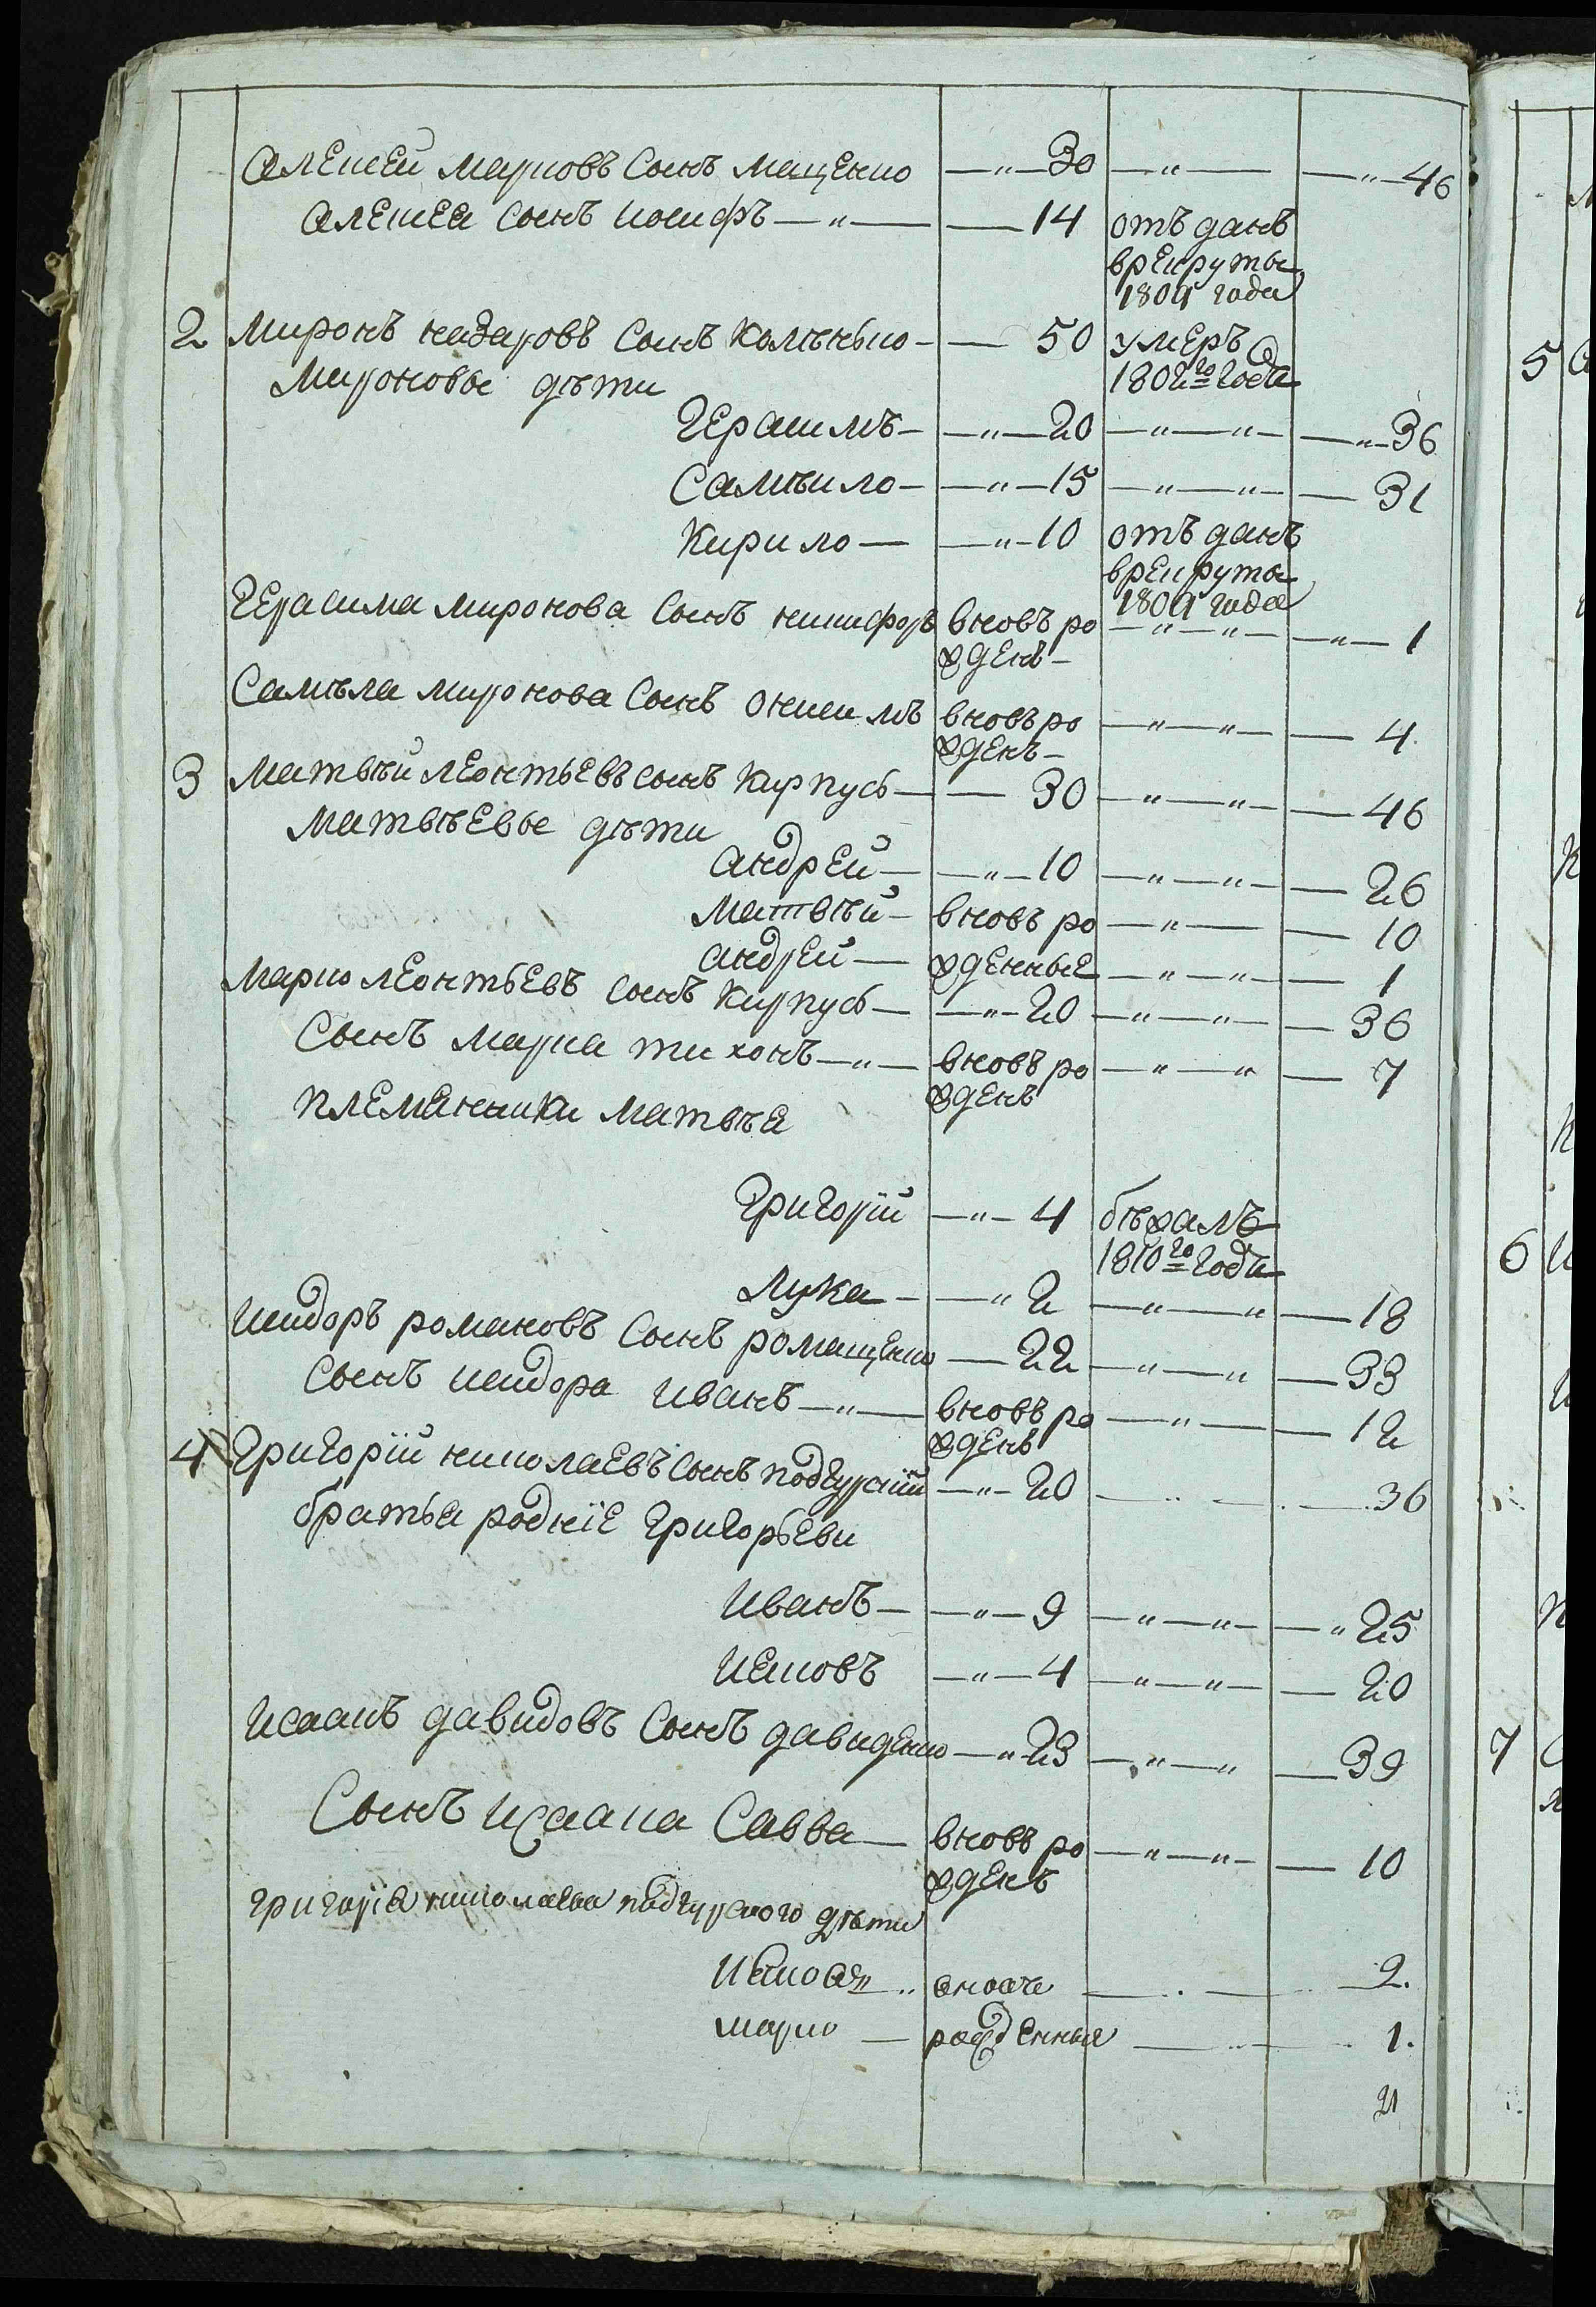 Алексей марковъ Сынъ мащенко —„— 30 —„— —„— 46
Алексея Сынъ иосифъ —„— — 14 отъ данъ
врекруты
1809 года
2 Миронъ назаровъ Сынъ — 50 умеръ
1802го года
Мироновы дѣти
Герасимъ — —„— 20 —„—„— —„— 36
Самѣило — —„— 15 —„—„— — 31
Кирило — —„— 10 отъ данъ
врекруты
1809 года
Герасима миронова Сынъ никифоръ вновъ ро —„—„— —„— 1
жденъ —
Самѣла миронова Сынъ онисимъ вновъ ро —„—„— — 4.
жденъ —
3 Матвѣй леонтьевъ сынъ Карпусь — — 30 —„—„— — 46
Матвѣевы дѣти
андрей — —„— 10 —„—„— — 26
Матвѣй — вновъ ро —„— — 10
андрей — жденные —„—„— — 1
Марко леонтьевъ сынъ Карпусь — —„— 20 —„—„— — 36
Сынъ марка тихонъ —„— вновъ ро —„—„ — 7
жденъ
племянники матвѣя
Григорій —„— 4 бѣжалъ
1810го года
Лука — —„ 2 —„—„ — 18
исидоръ романовъ сынъ ромащенко — 22 —„—„ — 33
Сынъ исидора иванъ —„— вновъ ро —„— — 12
жденъ
4 Григорій николаевъ Сынъ подгурскій —„— 20 — 36
братья родніе григорьеви
Иванъ — —„— 9 —„—„— —„ 25
Иековъ —„— 4 —„—„— — 20
Исаакъ давидовъ Сынъ давиденко —„ 23 —„—„ — 39
Сынъ исаака Савва — вновъ ро —„—„— — 10
жденъ
григорія николаева подгурского дѣти
— 2.
марко — рожденныя — 1.
21
5
6
7